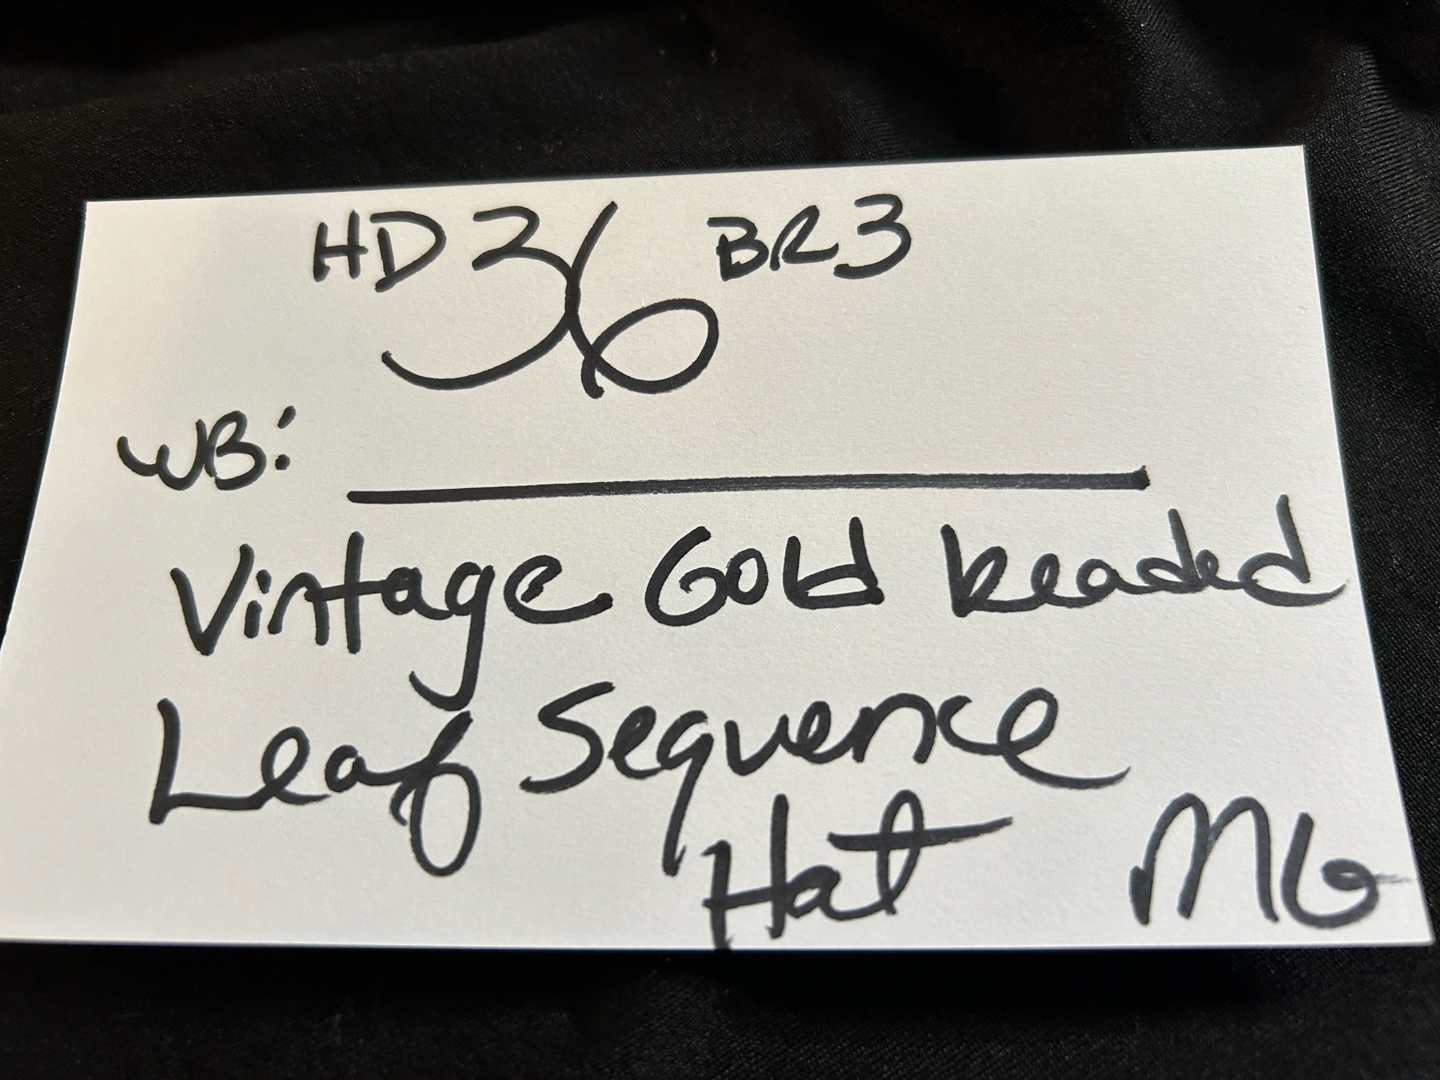 HD 36 BR3
WB:
Vintage Gold beaded
Leaf Sequence
Hat MG